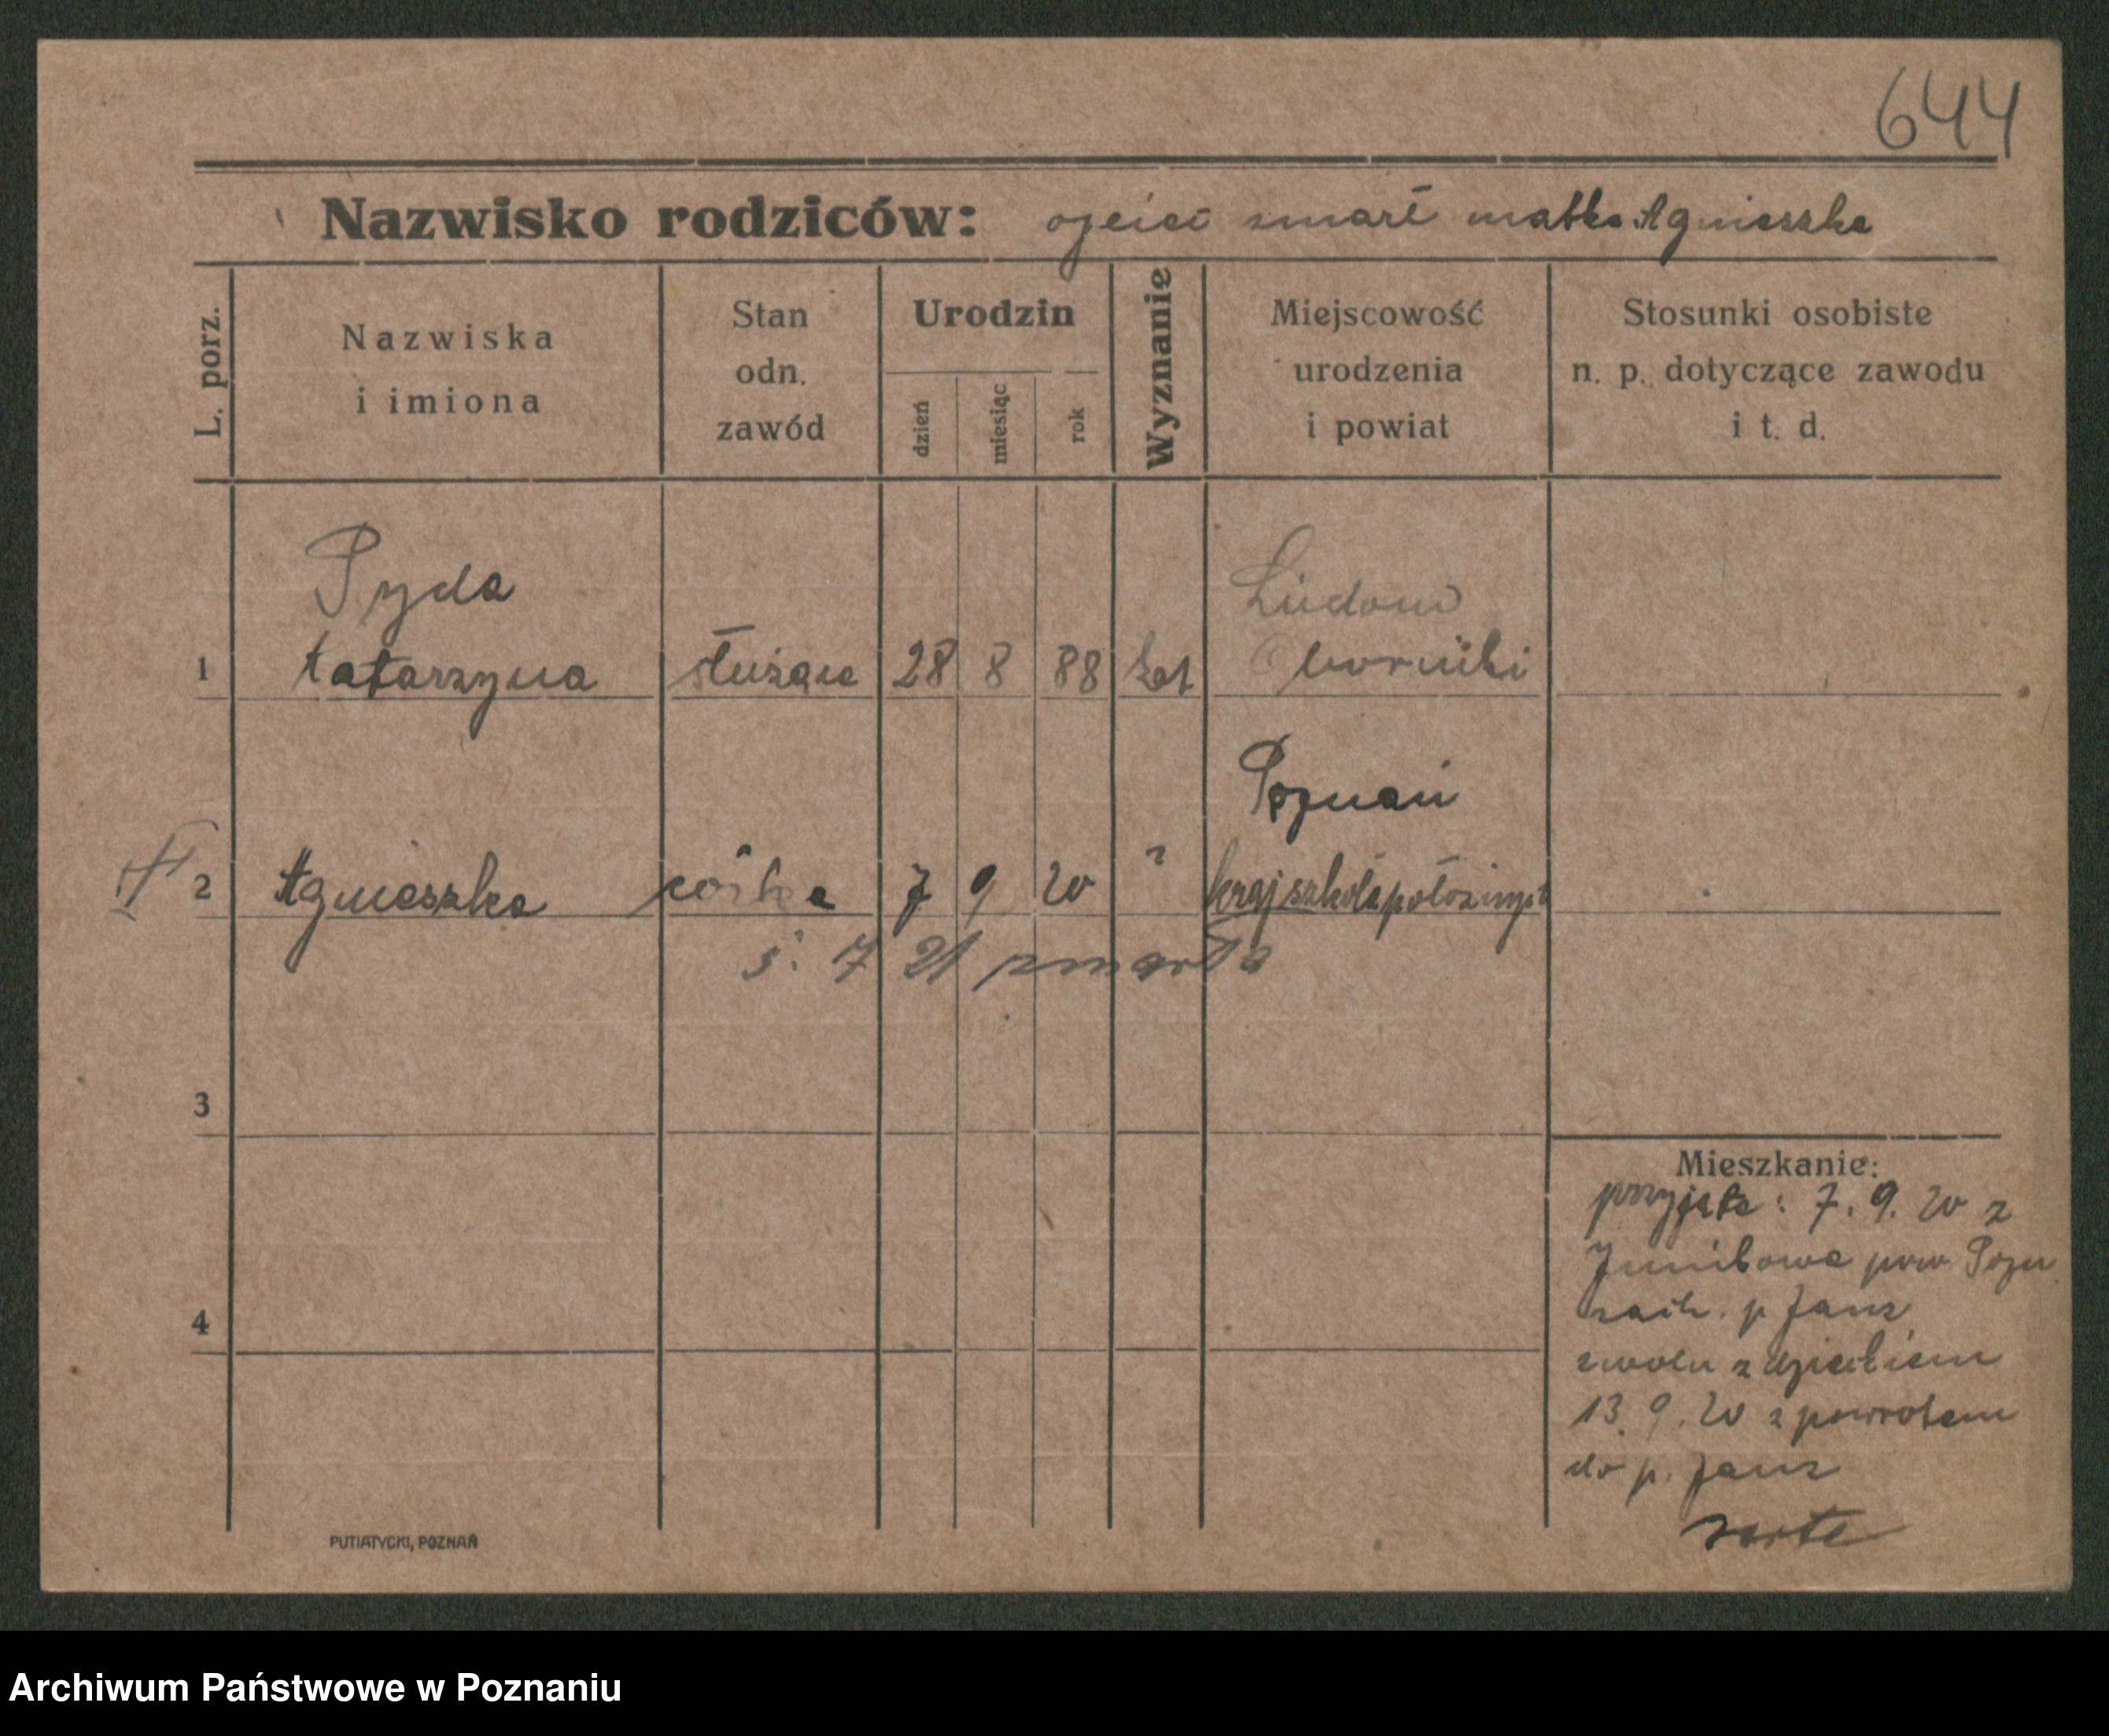 644
Nazwisko rodziców: ojciec zmarł matka Agnieszka
L. porz.
Nazwiska
i imiona
Stan
odn.
zawód
Urodzin
dzień
miesiąc
rok
Wyznanie
Miejscowość
urodzenia
i powiat
Stosunki osobiste
n. p. dotyczące zawodu
i t. d.
Pyda
Ludom
1 Katarzyna służąca 28 8 88 kat Oborniki
Poznań
2 Agnieszka córka 7 9 20 " kraj szkoła położnych
5. 7 21 zmarła
3
4
Mieszkanie:
przyjęta: 7. 9. 20 z
Junikowa pow Pozn
zach. p Janz
zwoln z dziećkiem
13. 9. 20 z powrotem
do p. Janz
PUTIATYCKI, POZNAŃ
Archiwum Państwowe w Poznaniu